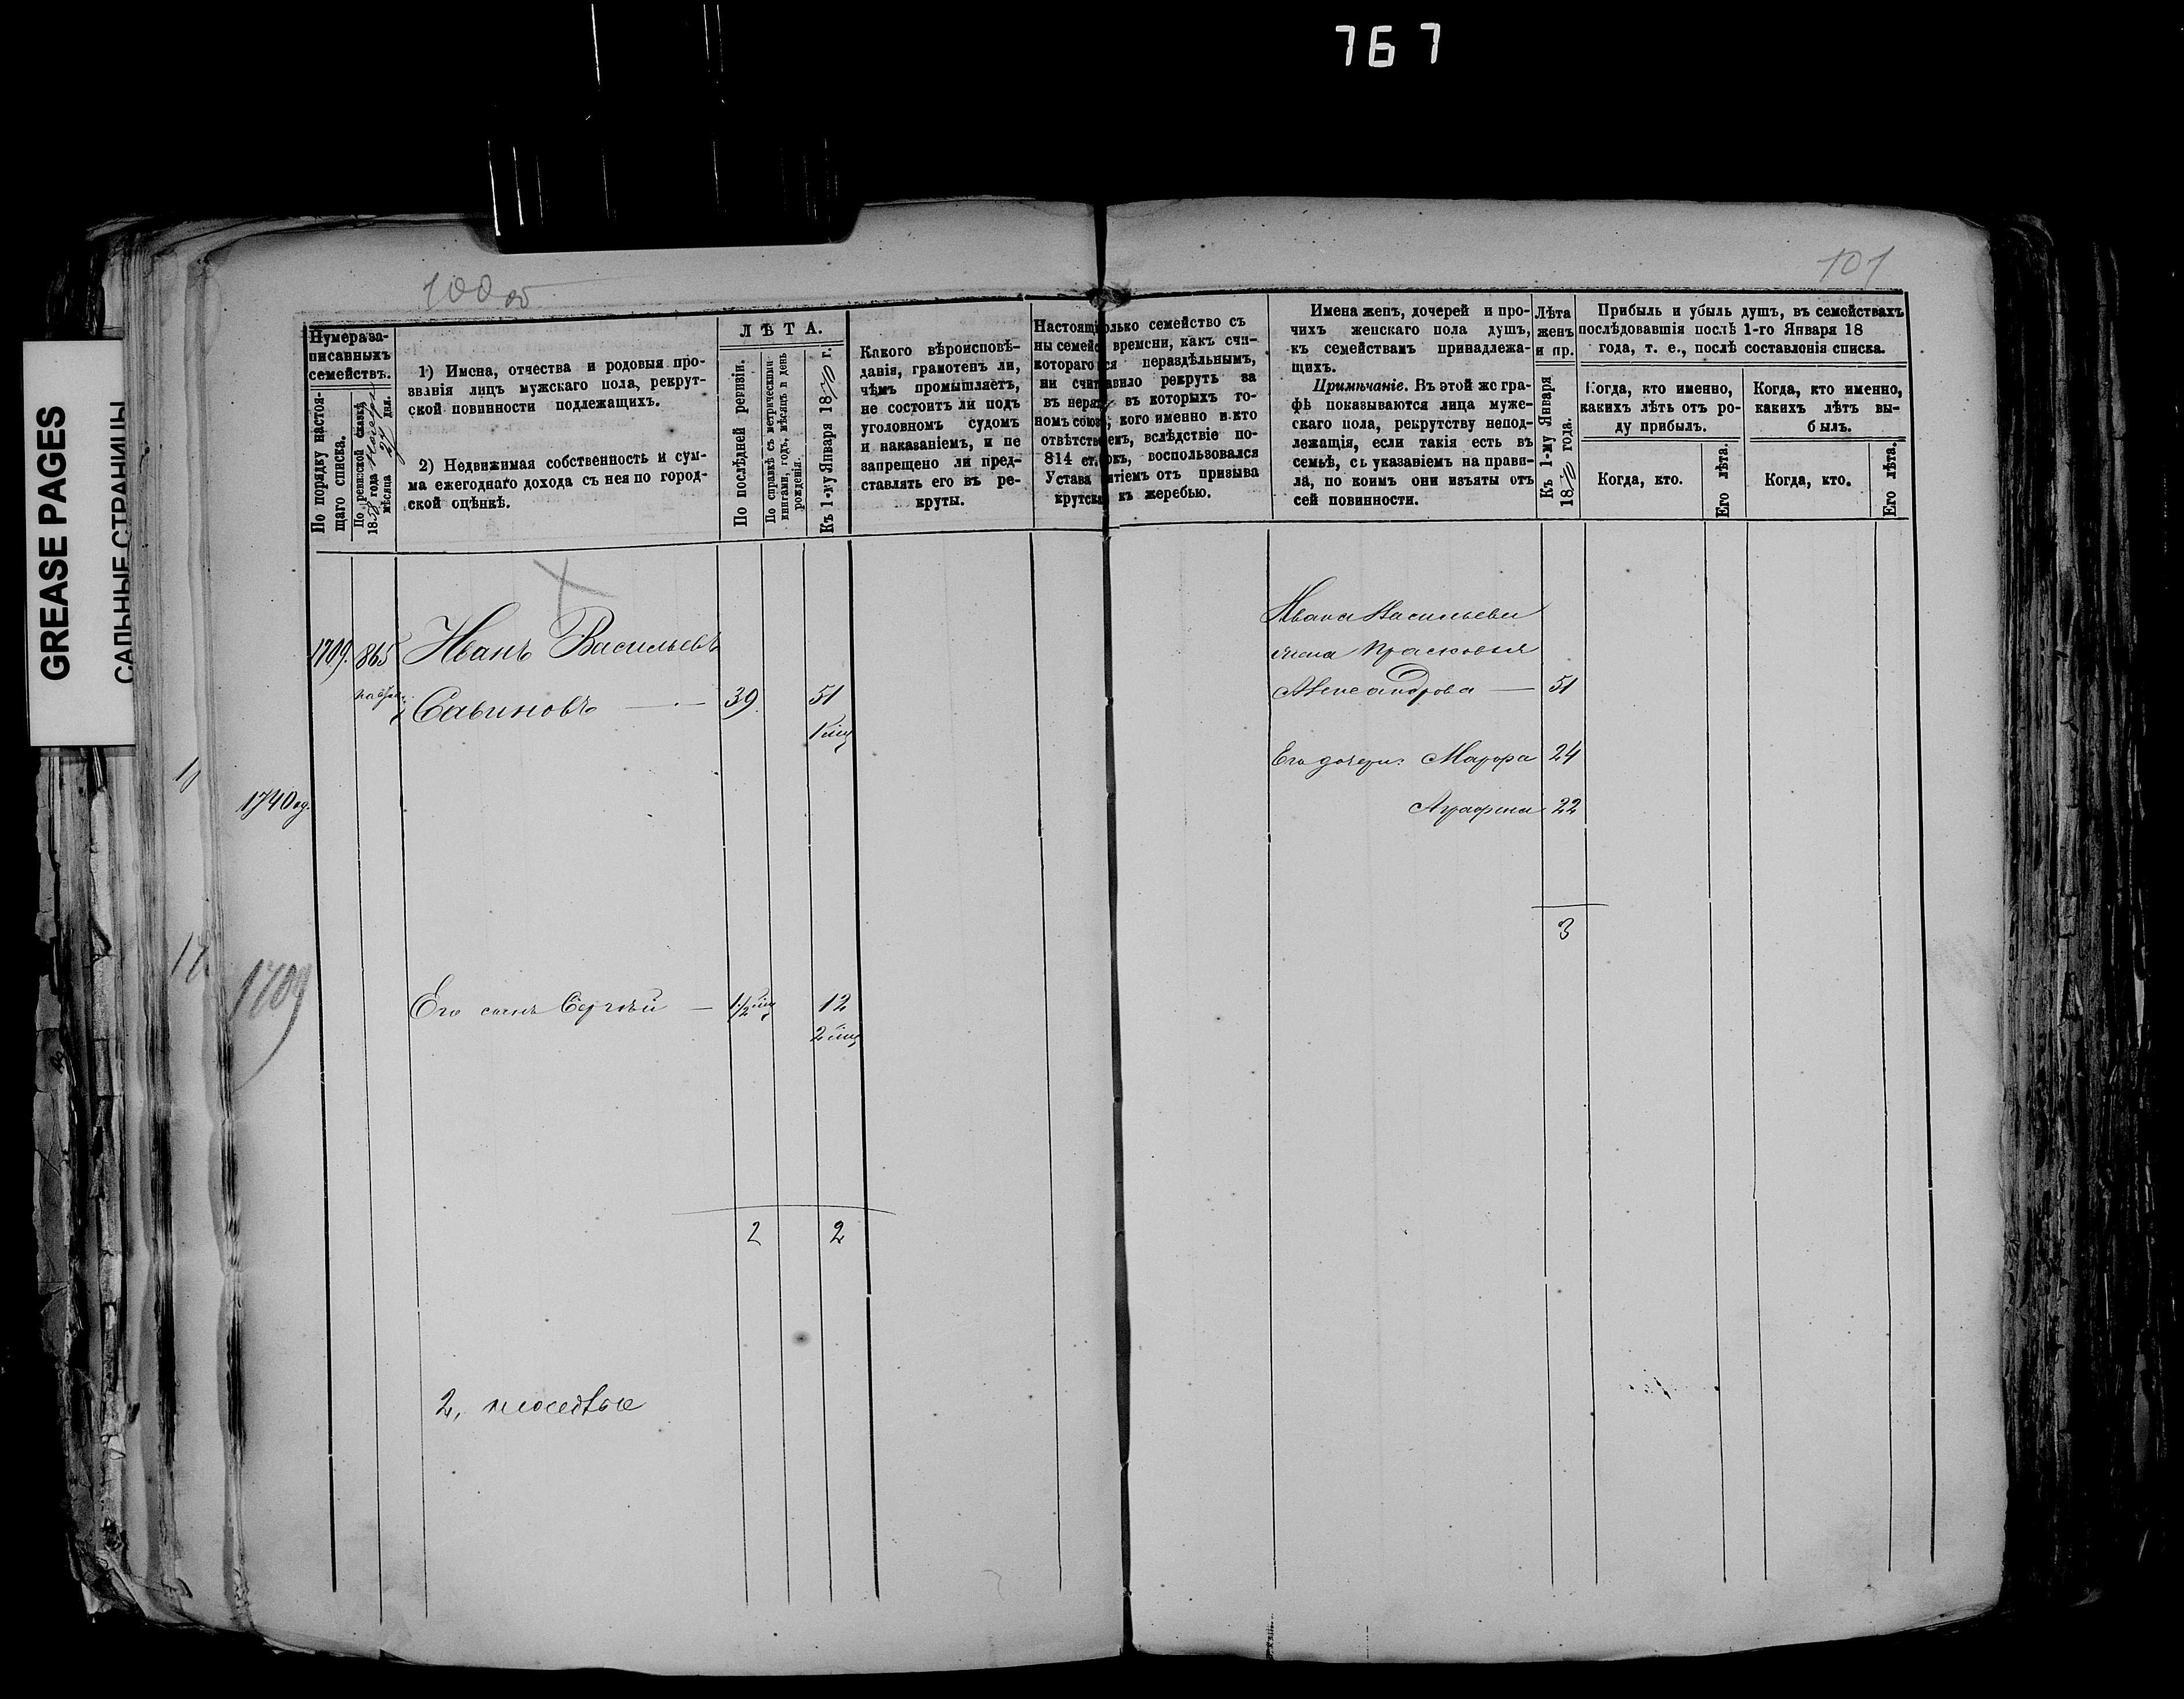 767
GREASE PAGES
САЛЬНЫЕ СТРАНИЦЫ
100 об
101
Нумера за-
писанныхъ
семействъ.
По порядку настоя-
щаго списка.
По ревизской сказкѣ
1858 года
мѣсяца 24 дня.
1) Имена, отчества и родовыя про-
званія лицъ мужскаго пола, рекрут-
ской повинности подлежащихъ.
2) Недвижимая собственность и сум-
ма ежегоднаго дохода съ нея по город-
ской оцѣнкѣ.
ЛѢТА.
По послѣдней ревизіи.
По справкѣ съ метрическими
книгами, годъ, мѣсяцъ и день
рожденія.
Къ 1-му Января 1870 г.
Какого вѣроисповѣ-
данія, грамотенъ ли,
чѣмъ промышляетъ,
не состоитъ ли подъ
уголовномъ судомъ
и наказаніемъ, и не
запрещено ли пред-
ставлять его въ ре-
круты.
Настоящі олько семейство съ
ны семейс времени, какъ счи-
котораго ся нераздѣльнымъ,
ни счит авило рекрутъ за
въ нера въ которыхъ го-
номъ союз , кого именно и кто
отвѣтств емъ, вслѣдствіе по-
814 ст. окъ, воспользовался
Устава ятіемъ отъ призыва
крутска къ жеребью.
Имена женъ, дочерей и про-
чихъ женскаго пола душъ,
къ семействамъ принадлежа-
щихъ.
Примѣчаніе. Въ этой же гра-
фѣ показываются лица муже-
скаго пола, рекрутству непод-
лежащія, если такія есть въ
семьѣ, съ указаніемъ на прави-
ла, по коимъ они изъяты отъ
сей повинности.
Лѣта
женъ
и пр.
Къ 1-му Января
1870 года.
Прибыль и убыль душъ, въ семействахъ
послѣдовавшія послѣ 1-го Января 18
года, т. е., послѣ составленія списка.
Когда, кто именно,
какихъ лѣтъ отъ ро-
ду прибылъ.
Когда, кто.
Его лѣта.
Когда, кто именно,
какихъ лѣтъ вы-
былъ.
Когда, кто.
Его лѣта.
1709. 865 Иванъ Васильевъ
Савиновъ — 39. 51
Ивана Васильева
жена Прасковья
Александрова — 51
Его дочери: Марфа 24
Аграфена 22
3
1740
1709
Его сынъ Сергѣй — 1/2 12
2
2 2
2,